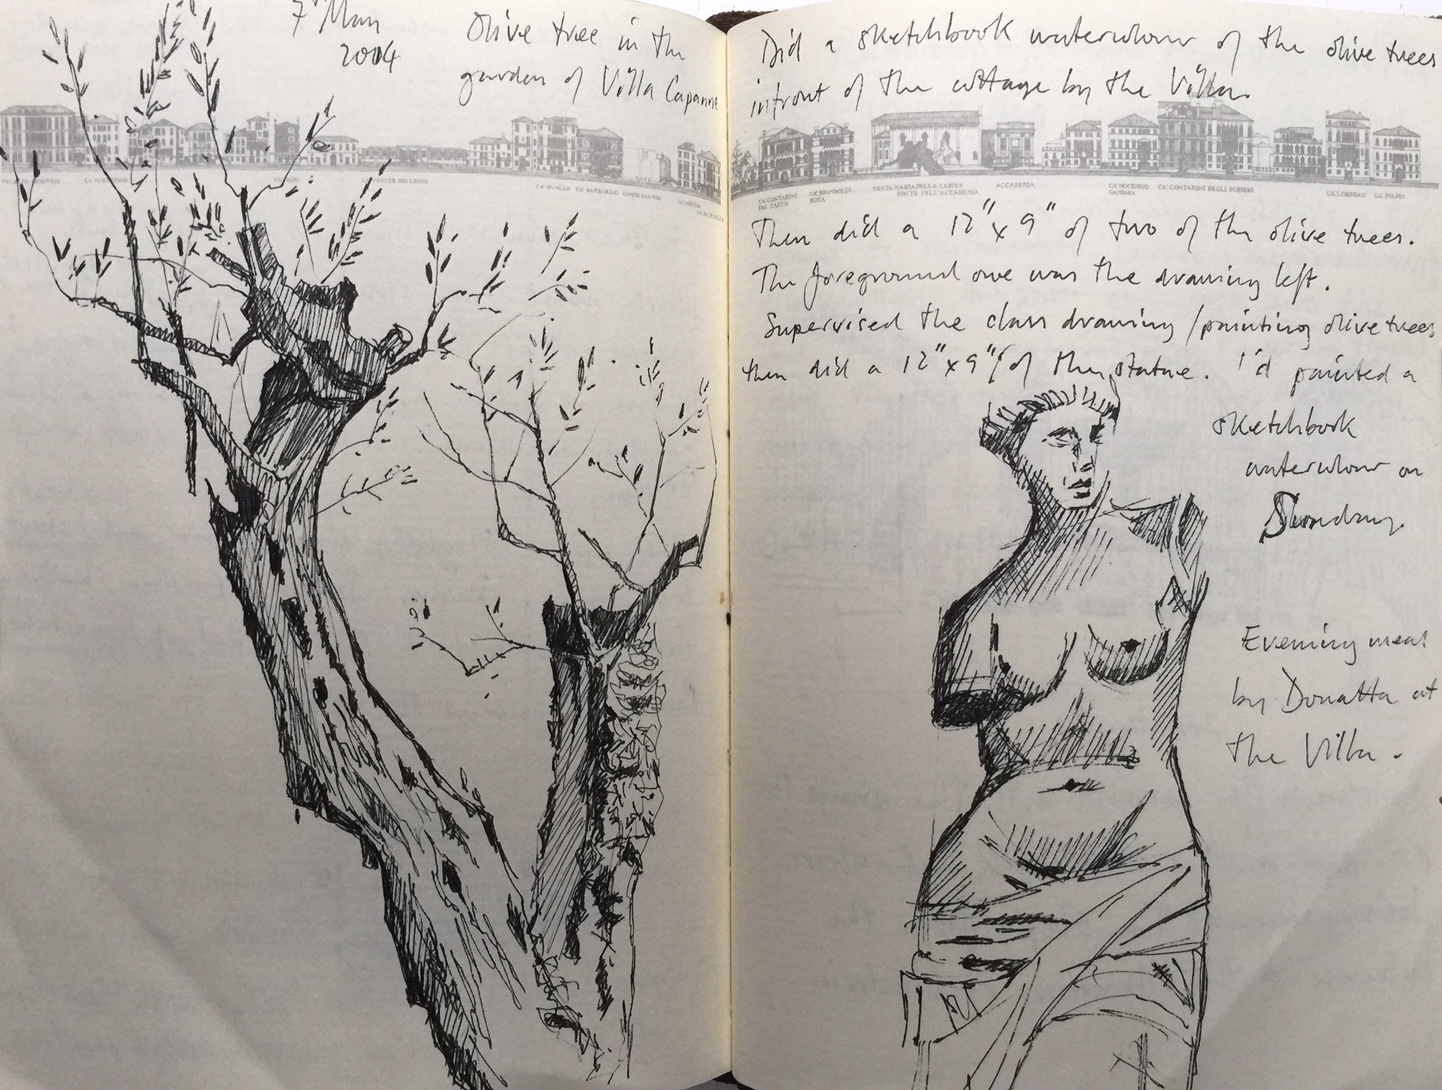 7 May
2004
Olive tree in the
garden of Villa Capanne
Did a sketchbook watercolour of the olive trees
infront of the cottage by the Villa.
CA' BARBARIGO
CA' CONTARINI
DAL ZAFFO
CA' BRANDOLIN
ROTA
SANTA MARIA DELLA CARITA
PONTE DELL'ACCADEMIA
ACCADEMIA
CA' MOCENIGO
GAMBARA
CA' CONTARINI DEGLI SCRIGNI
CA' LOREDAN
CA' DOLFIN
Then did a 12" x 9" of two of the olive trees.
The foreground one was the drawing left.
Supervised the class drawing/painting olive trees
then did a 12" x 9" of the statue. I'd painted a
sketchbook
watercolour on
Sunday.
Evening meal
by Donatta at
the Villa.